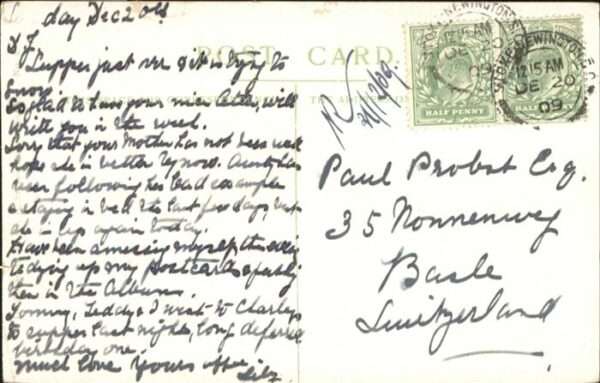 day Dec 20th
D J
Supper just over & it is trying to
snow.
So glad to have your nice letter, will
write you in the week.
Sorry that your Mother has not been well
hope she is better by now. Aunt has
been following his bad example
& staying in bed the last few days, but
she is up again today.
Have been amusing myself this evening
tidying up my postcards & putting
them in the Albums.
Tommy, Teddy & I went to Charleys
to supper last night, long deferred
birthday one.
Much love Yours affec
POST CARD
THE ADDRESS
R 21/12/09.
HALF PENNY
HALF PENNY
STOKE NEWINGTON
12 15 AM
DE 20
09
STOKE NEWINGTON
12 15 AM
DE 20
09
Paul Probst Esq.
35 Nonnenweg
Basle
Switzerland